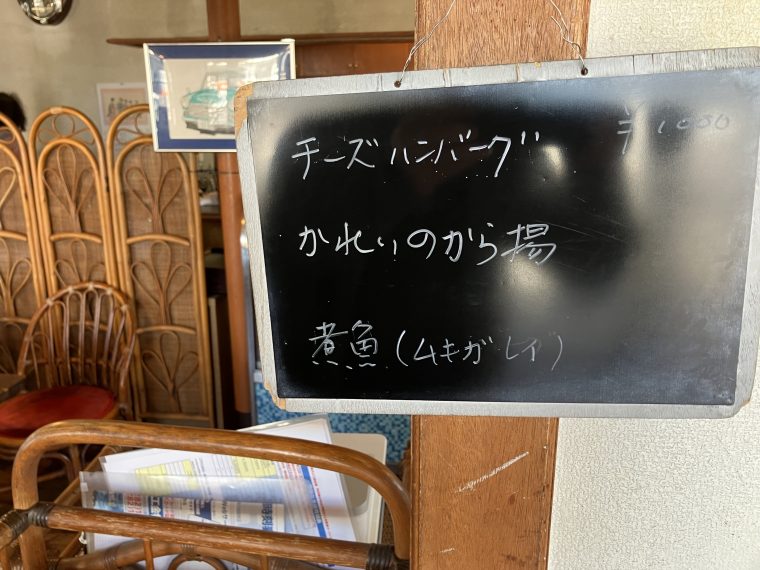 チーズハンバーグ ¥1000
かれいのから揚
煮魚(ムキガレイ)